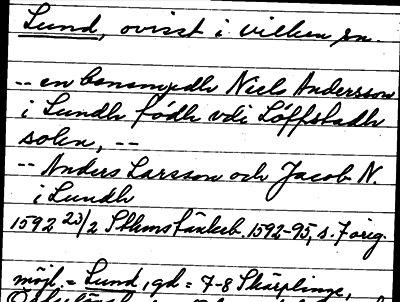 Lund, ovisst i vilken sn.
-- en benemndh Niels Andersson
i Lundh födh vdi Löffstadh
solen, --
-- Anders Larsson och Jacob N.
i Lundh
1592 23/2 Sthms tänkeb. 1592-95, s. 7 orig.
möjl. = Lund, gd = 7-8 Skärplinge,